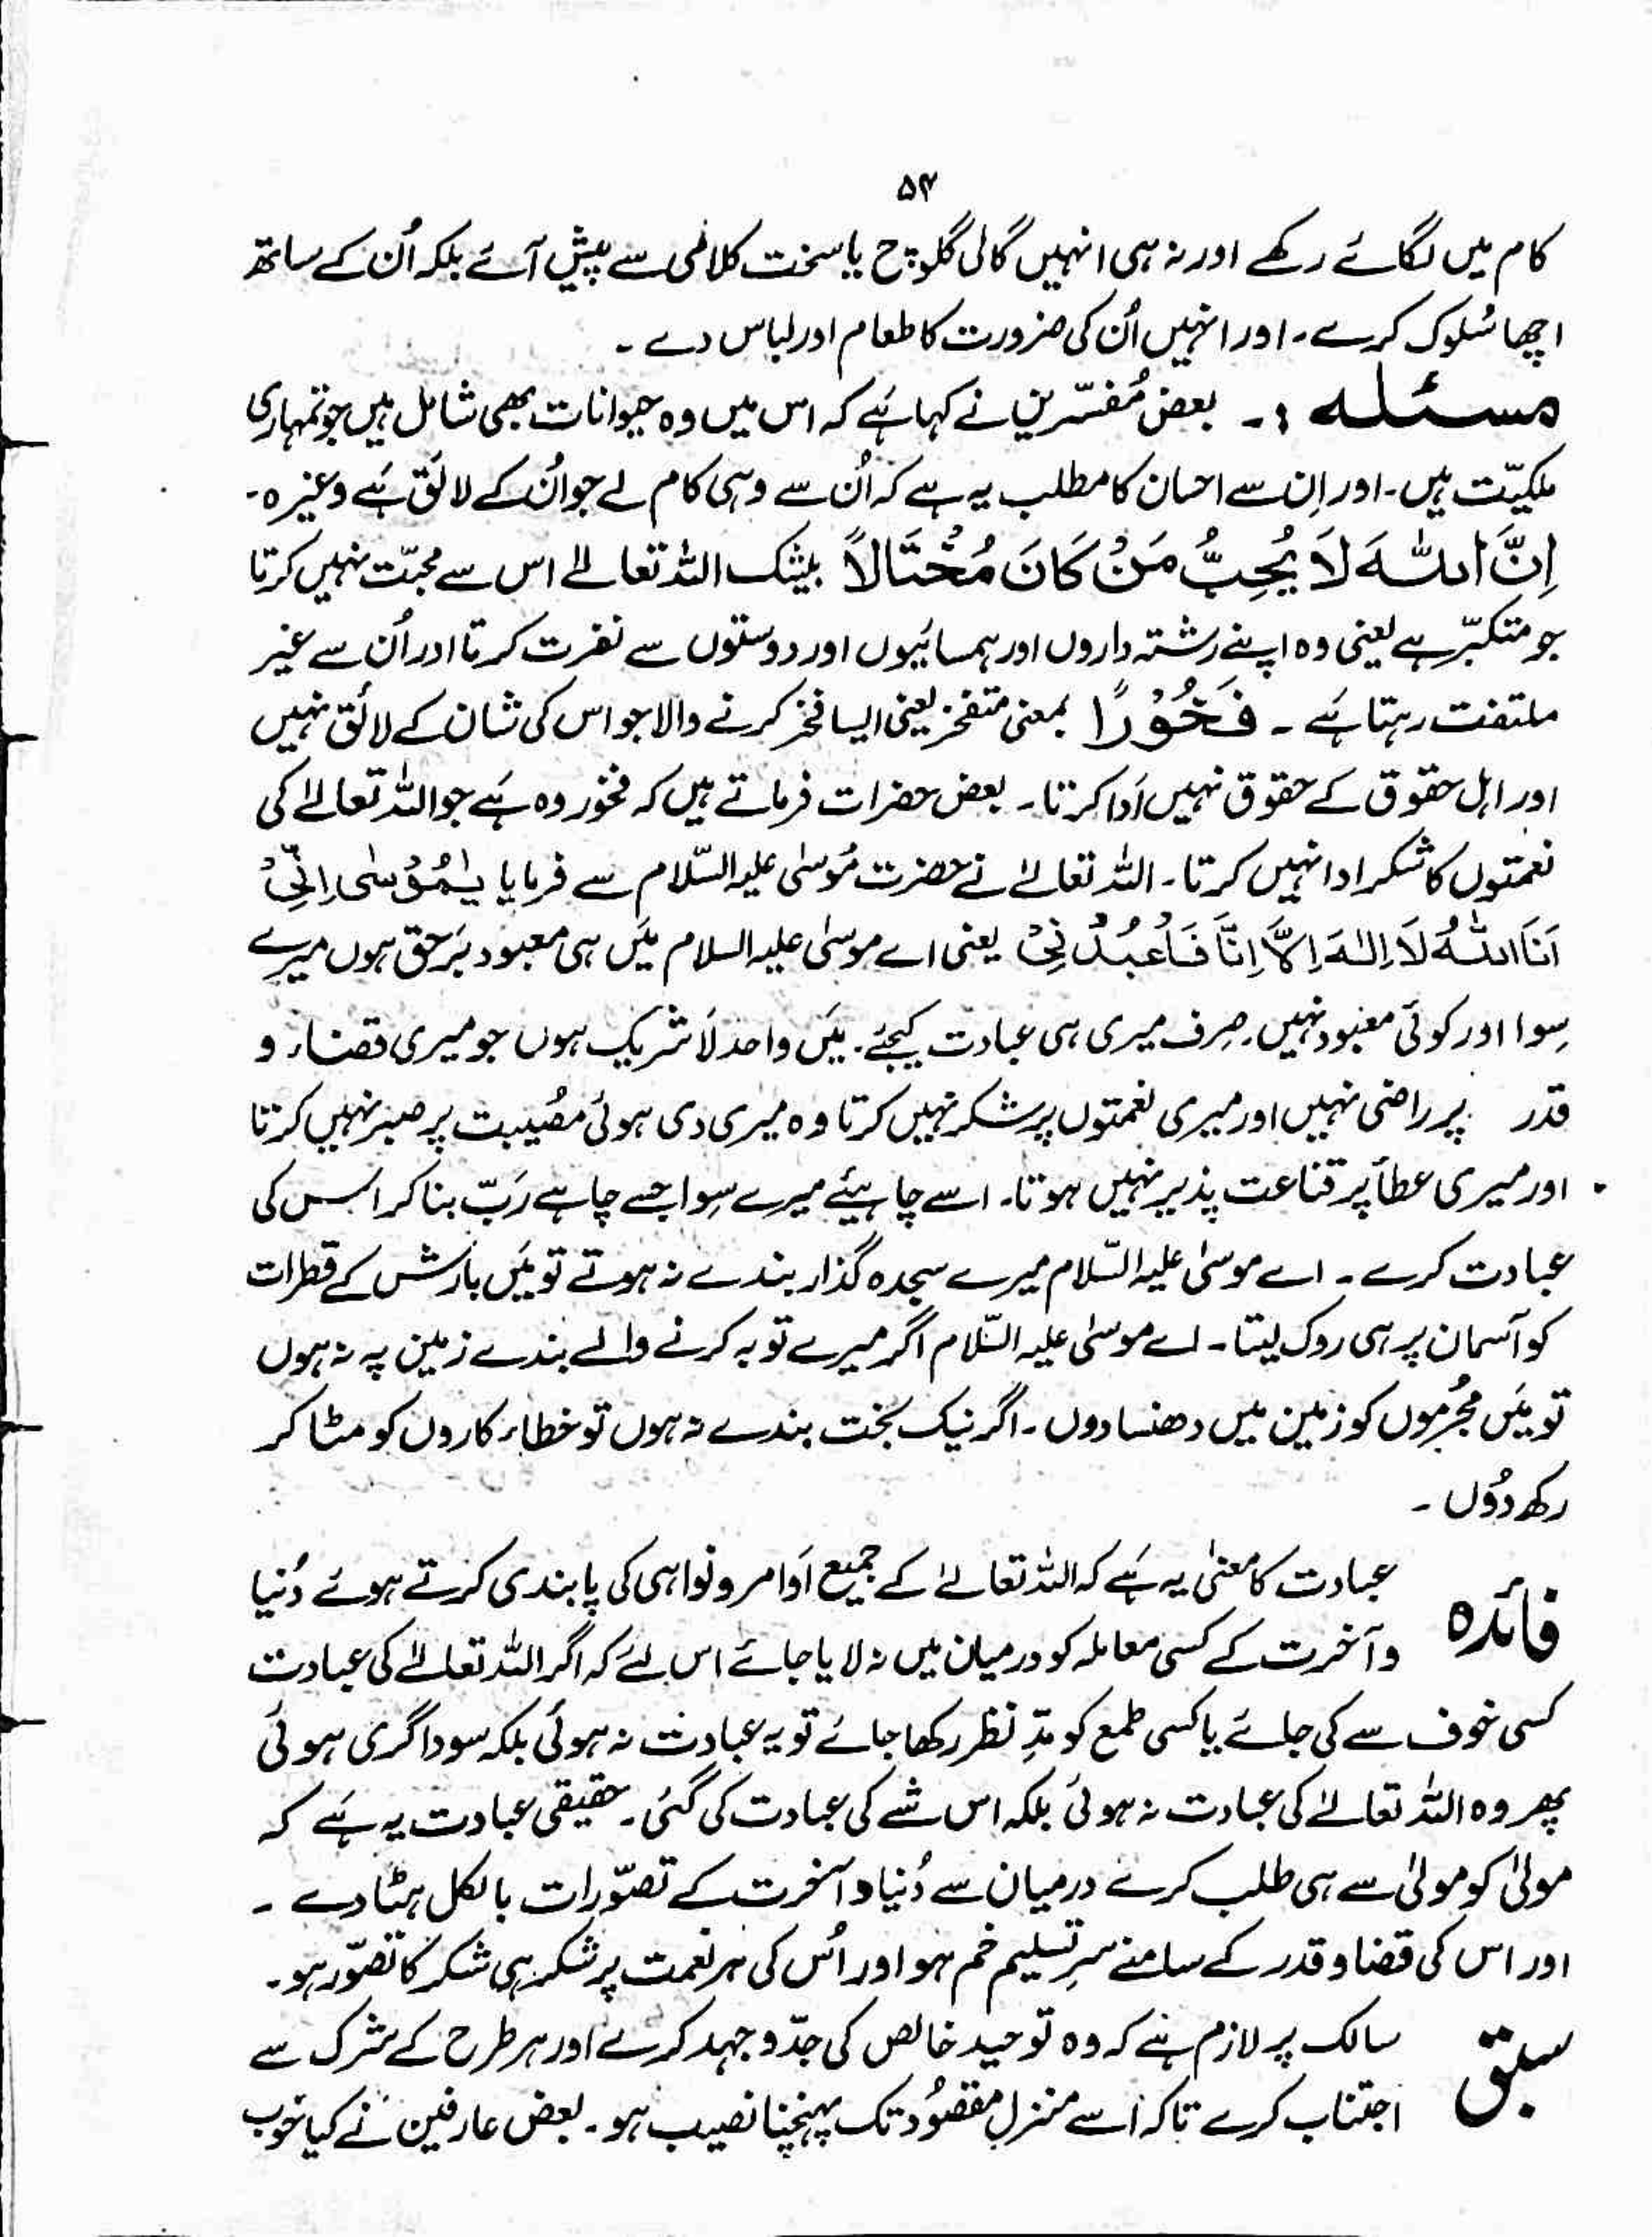 ۵۴
کام میں لگائے رکھے اور نہ ہی انہیں گالی گلوچ یا سخت کلامی سے پیش آئے بلکہ اُن کے ساتھ
اچھا سُلوک کرے۔ اور انہیں اُن کی ضرورت کا طعام اور لباس دے ۔
مسئلہ :۔ بعض مُفسّرین نے کہا ہَے کہ اس میں وہ حیوانات بھی شامل ہیں جو تمہاری
ملکیّت ہیں۔ اور اِن سے احسان کا مطلب یہ ہے کہ اُن سے وہی کام لے جو اُن کے لائق ہَے وغیرہ۔
اِنَّ اللّٰہَ لَا یُحِبُّ مَنْ کَانَ مُخْتَالاً بیشک اللہ تعالےٰ اس سے محبّت نہیں کرتا
جو متکبّر ہے یعنی وہ اپنے رشتہ داروں اور ہمسائیوں اور دوستوں سے نفرت کرتا اور اُن سے غیر
ملتفت رہتا ہَے ۔ فَخُوْرًا بمعنی متفخر یعنی ایسا فخر کرنے والا جو اس کی شان کے لائق نہیں
اور اہل حقوق کے حقوق نہیں اَدا کرتا۔ بعض حضرات فرماتے ہیں کہ فخور وہ ہَے جو اللہ تعالےٰ کی
نعمتوں کا شکر ادا نہیں کرتا۔ اللہ تعالےٰ نے حضرت مُوسٰی علیہ السّلام سے فرمایا یٰمُوْسٰی اِنِّیْ
اَنَا اللّٰہُ لَا اِلٰہَ اِلَّا اِنَّا فَاعْبُدْ نِیْ یعنی اے موسیٰ علیہ السلام مَیں ہی معبود بَرحق ہوں میرے
سِوا اور کوئی معبود نہیں۔ صِرف میری ہی عبادت کیجئے۔ مَیں واحد لَا شریک ہوں جو میری قضاء و
قدر پر راضی نہیں اور میری نعمتوں پر شکر نہیں کرتا وہ میری دی ہوئی مصُیبت پر صبر نہیں کرتا
اور میری عطأ پر قناعت پذیر نہیں ہوتا۔ اسے چاہیئے میرے سِوا جسے چاہے رَبّ بنا کر اس کی
عبادت کرے ۔ اے موسیٰ علیہ السّلام میرے سجدہ گذار بندے نہ ہوتے تو مَیں بارش کے قطرات
کو آسمان پر ہی روک لیتا۔ اے موسیٰ علیہ السّلام اگر میرے توبہ کرنے والے بندے زمین پہ نہ ہوں
تو مَیں مجُرموں کو زمین میں دھنسا دوں ۔ اگر نیک بخت بندے نہ ہوں تو خطاء کاروں کو مٹا کر
رکھ دُوں ۔
فائدہ عبادت کا معنیٰ یہ ہَے کہ اللہ تعالےٰ کے جمیع اَوامر و نواہی کی پابندی کرتے ہوئے دُنیا
و آخرت کے کسی معاملہ کو درمیان میں نہ لایا جائے اس لئے کہ اگر اللہ تعالےٰ کی عبادت
کسی خوف سے کی جائے یا کسی طمع کو مدِّ نظر رکھا جائے تو یہ عبادت نہ ہوئی بلکہ سوداگری ہوئی
پھر وہ اللہ تعالےٰ کی عبادت نہ ہوئی بلکہ اس شے کی عبادت کی گئی۔ حقیقی عبادت یہ ہَے کہ
مولیٰ کو مولیٰ سے ہی طلب کرے درمیان سے دُنیا و آخرت کے تصوّرات بالکل ہٹا دے ۔
اور اس کی قضا و قدر کے سامنے سرِ تسلیم خم ہو اور اُس کی ہر نعمت پر شکر ہی شکر کا تصوّر ہو۔
سبق سالک پر لازم ہَے کہ وہ توحید خالص کی جدّ و جہد کرے اور ہر طرح کے شرک سے
اجتناب کرے تاکہ اُسے منزلِ مقصُود تک پہنچنا نصیب ہو۔ بعض عارفین نے کیا خوب